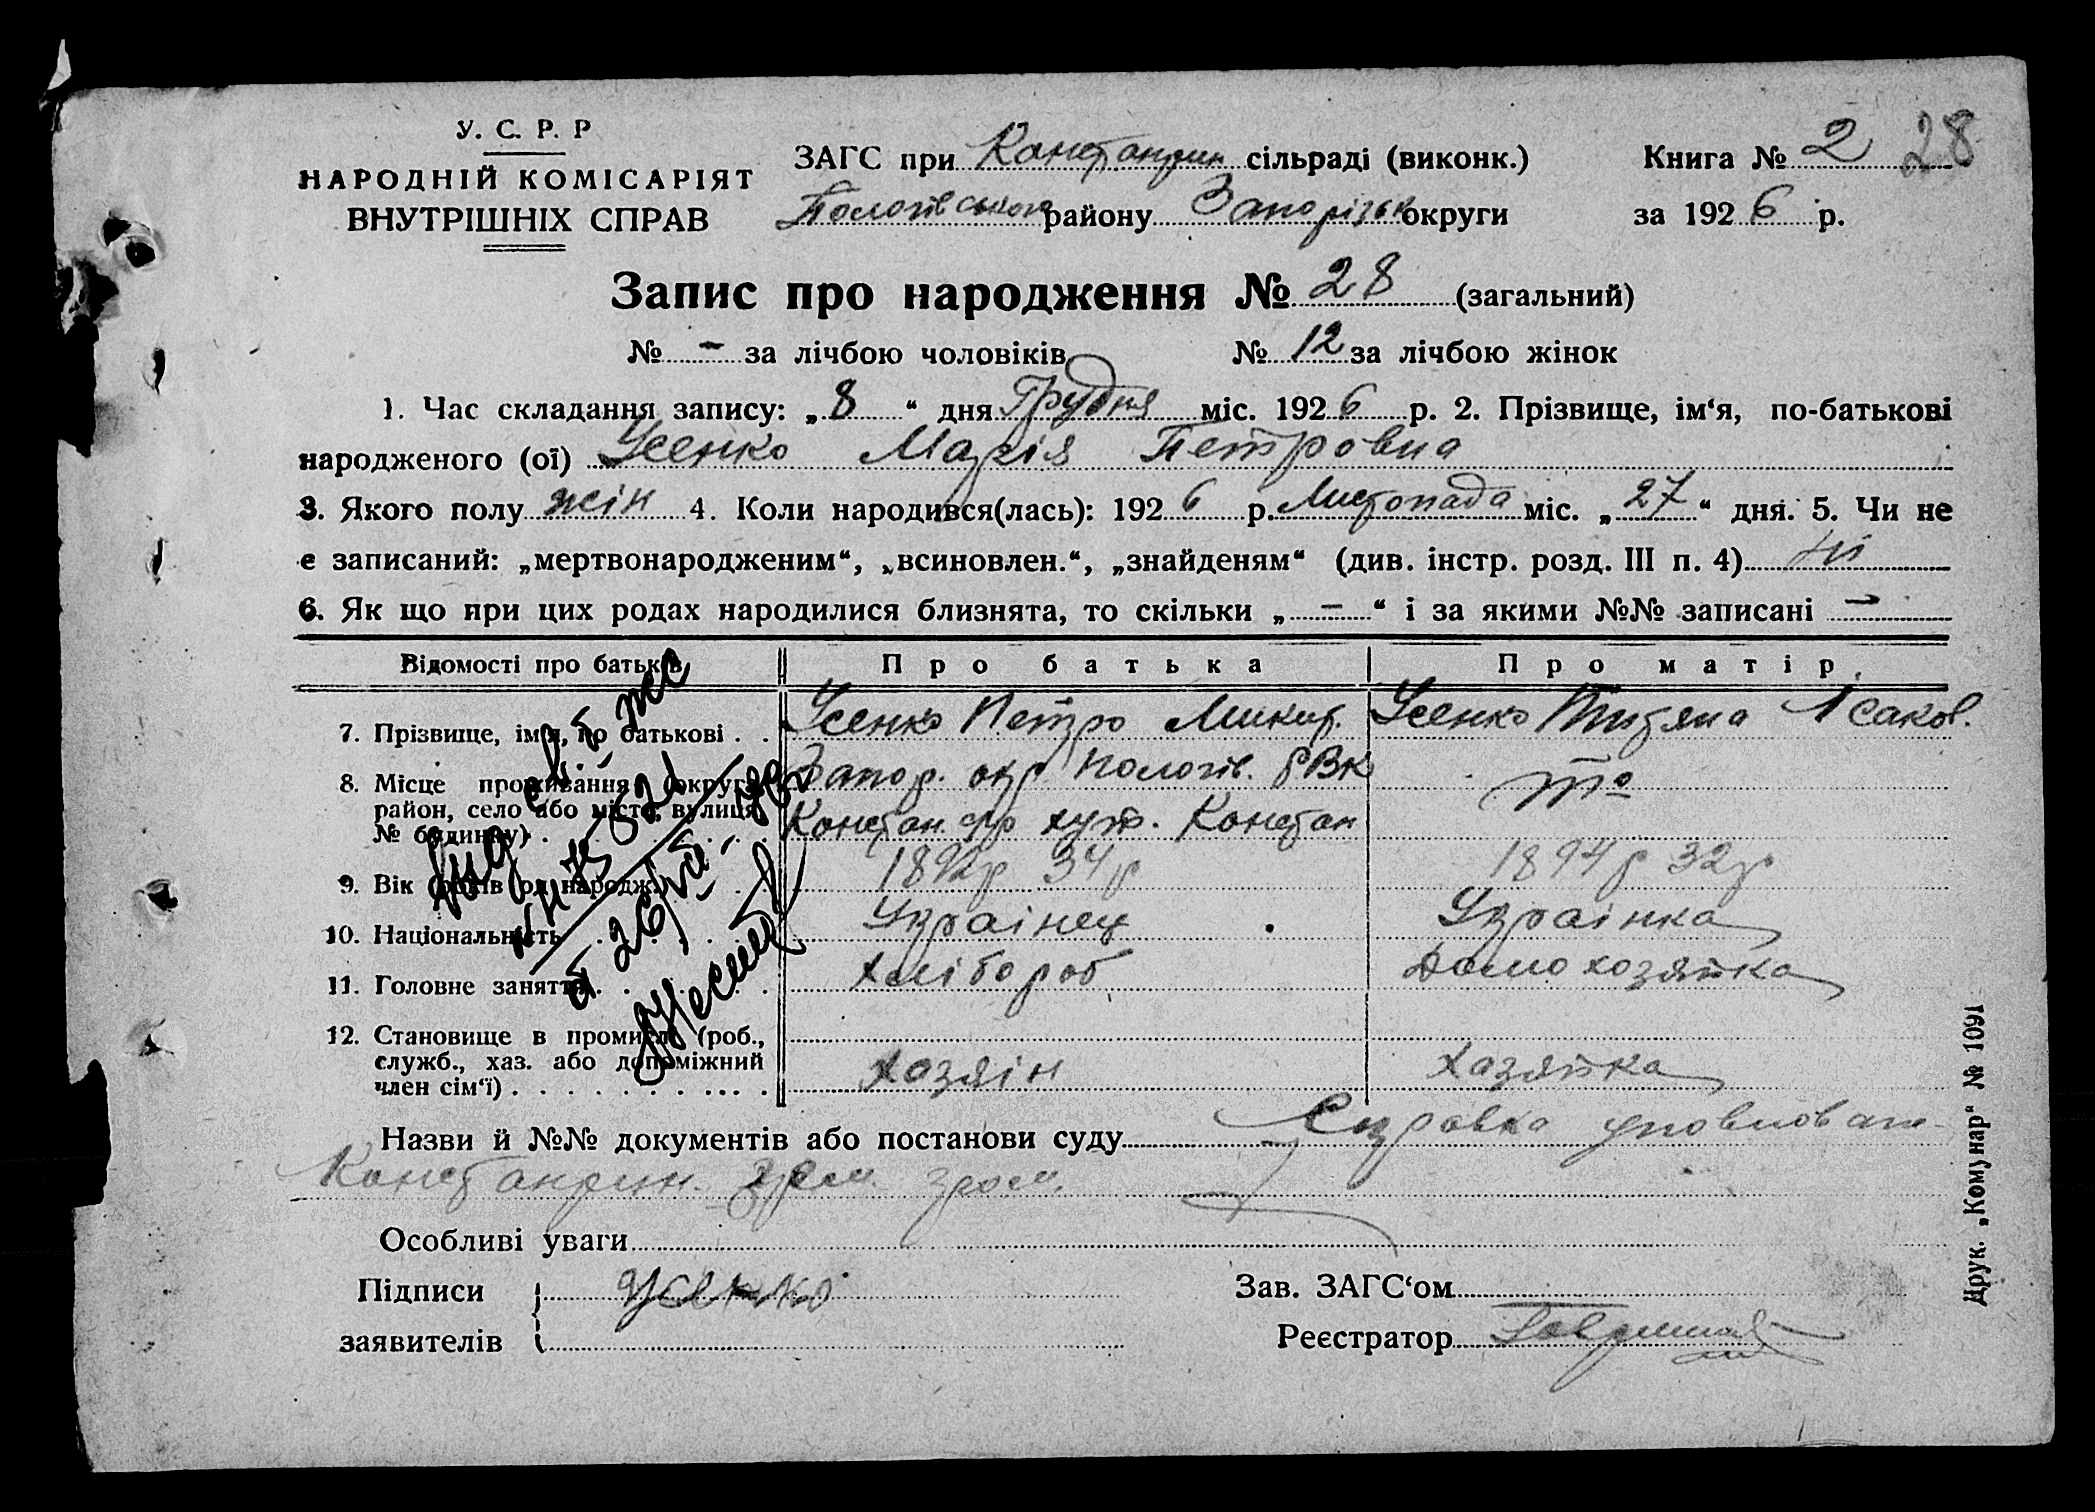 У. С. Р. Р
НАРОДНІЙ КОМІСАРІЯТ
ВНУТРІШНІХ СПРАВ
ЗАГС при Константин сільраді (виконк.)
Пологівського району Запорізьк округи
Книга № 2 28
за 1926 р.
Запис про народження № 28 (загальний)
№ - за лічбою чоловіків № 12 за лічбою жінок
1. Час складання запису: „8“ дня Грудня міс. 1926 р. 2. Прізвище, ім‘я, по-батькові
народженого (ої) Усенко Марія Петровна
3. Якого полу жін 4. Коли народився(лась): 1926 р. Листопада міс. „27“ дня. 5. Чи не
є записаний: „мертвонародженим“, „всиновлен.“, „знайденям“ (див. інстр. розд. III п. 4) ні
6. Як що при цих родах народилися близнята, то скільки „ – “ і за якими №№ записані –
Відомості про батьків Про батька Про матір
7. Прізвище, ім‘я, по батькові . . Усенко Петро Микит. Усенко Титяна Ісаков.
8. Місце проживання (округа, Запор. окр. Пологів. РВК то
район, село або місто, вулиця,
№ будинку) . Констан. с/р хут. Констан
9. Вік (років од народж.) 1892р 34р 1894р 32р
10. Національність Українец Українка
11. Головне заняття . . Хлібороб Домохозяйка
12. Становище в промислі (роб.,
служб., хаз. або допоміжний Хозяін Хазяйка
член сім‘ї) . . . . . . . . . . . .
Назви й №№ документів або постанови суду Справка уповноваж
Константин. гром.
Особливі уваги
Підписи Усенко Зав. ЗАГС‘ом
заявителів Реєстратор
Друк. „Комунар“ № 1091